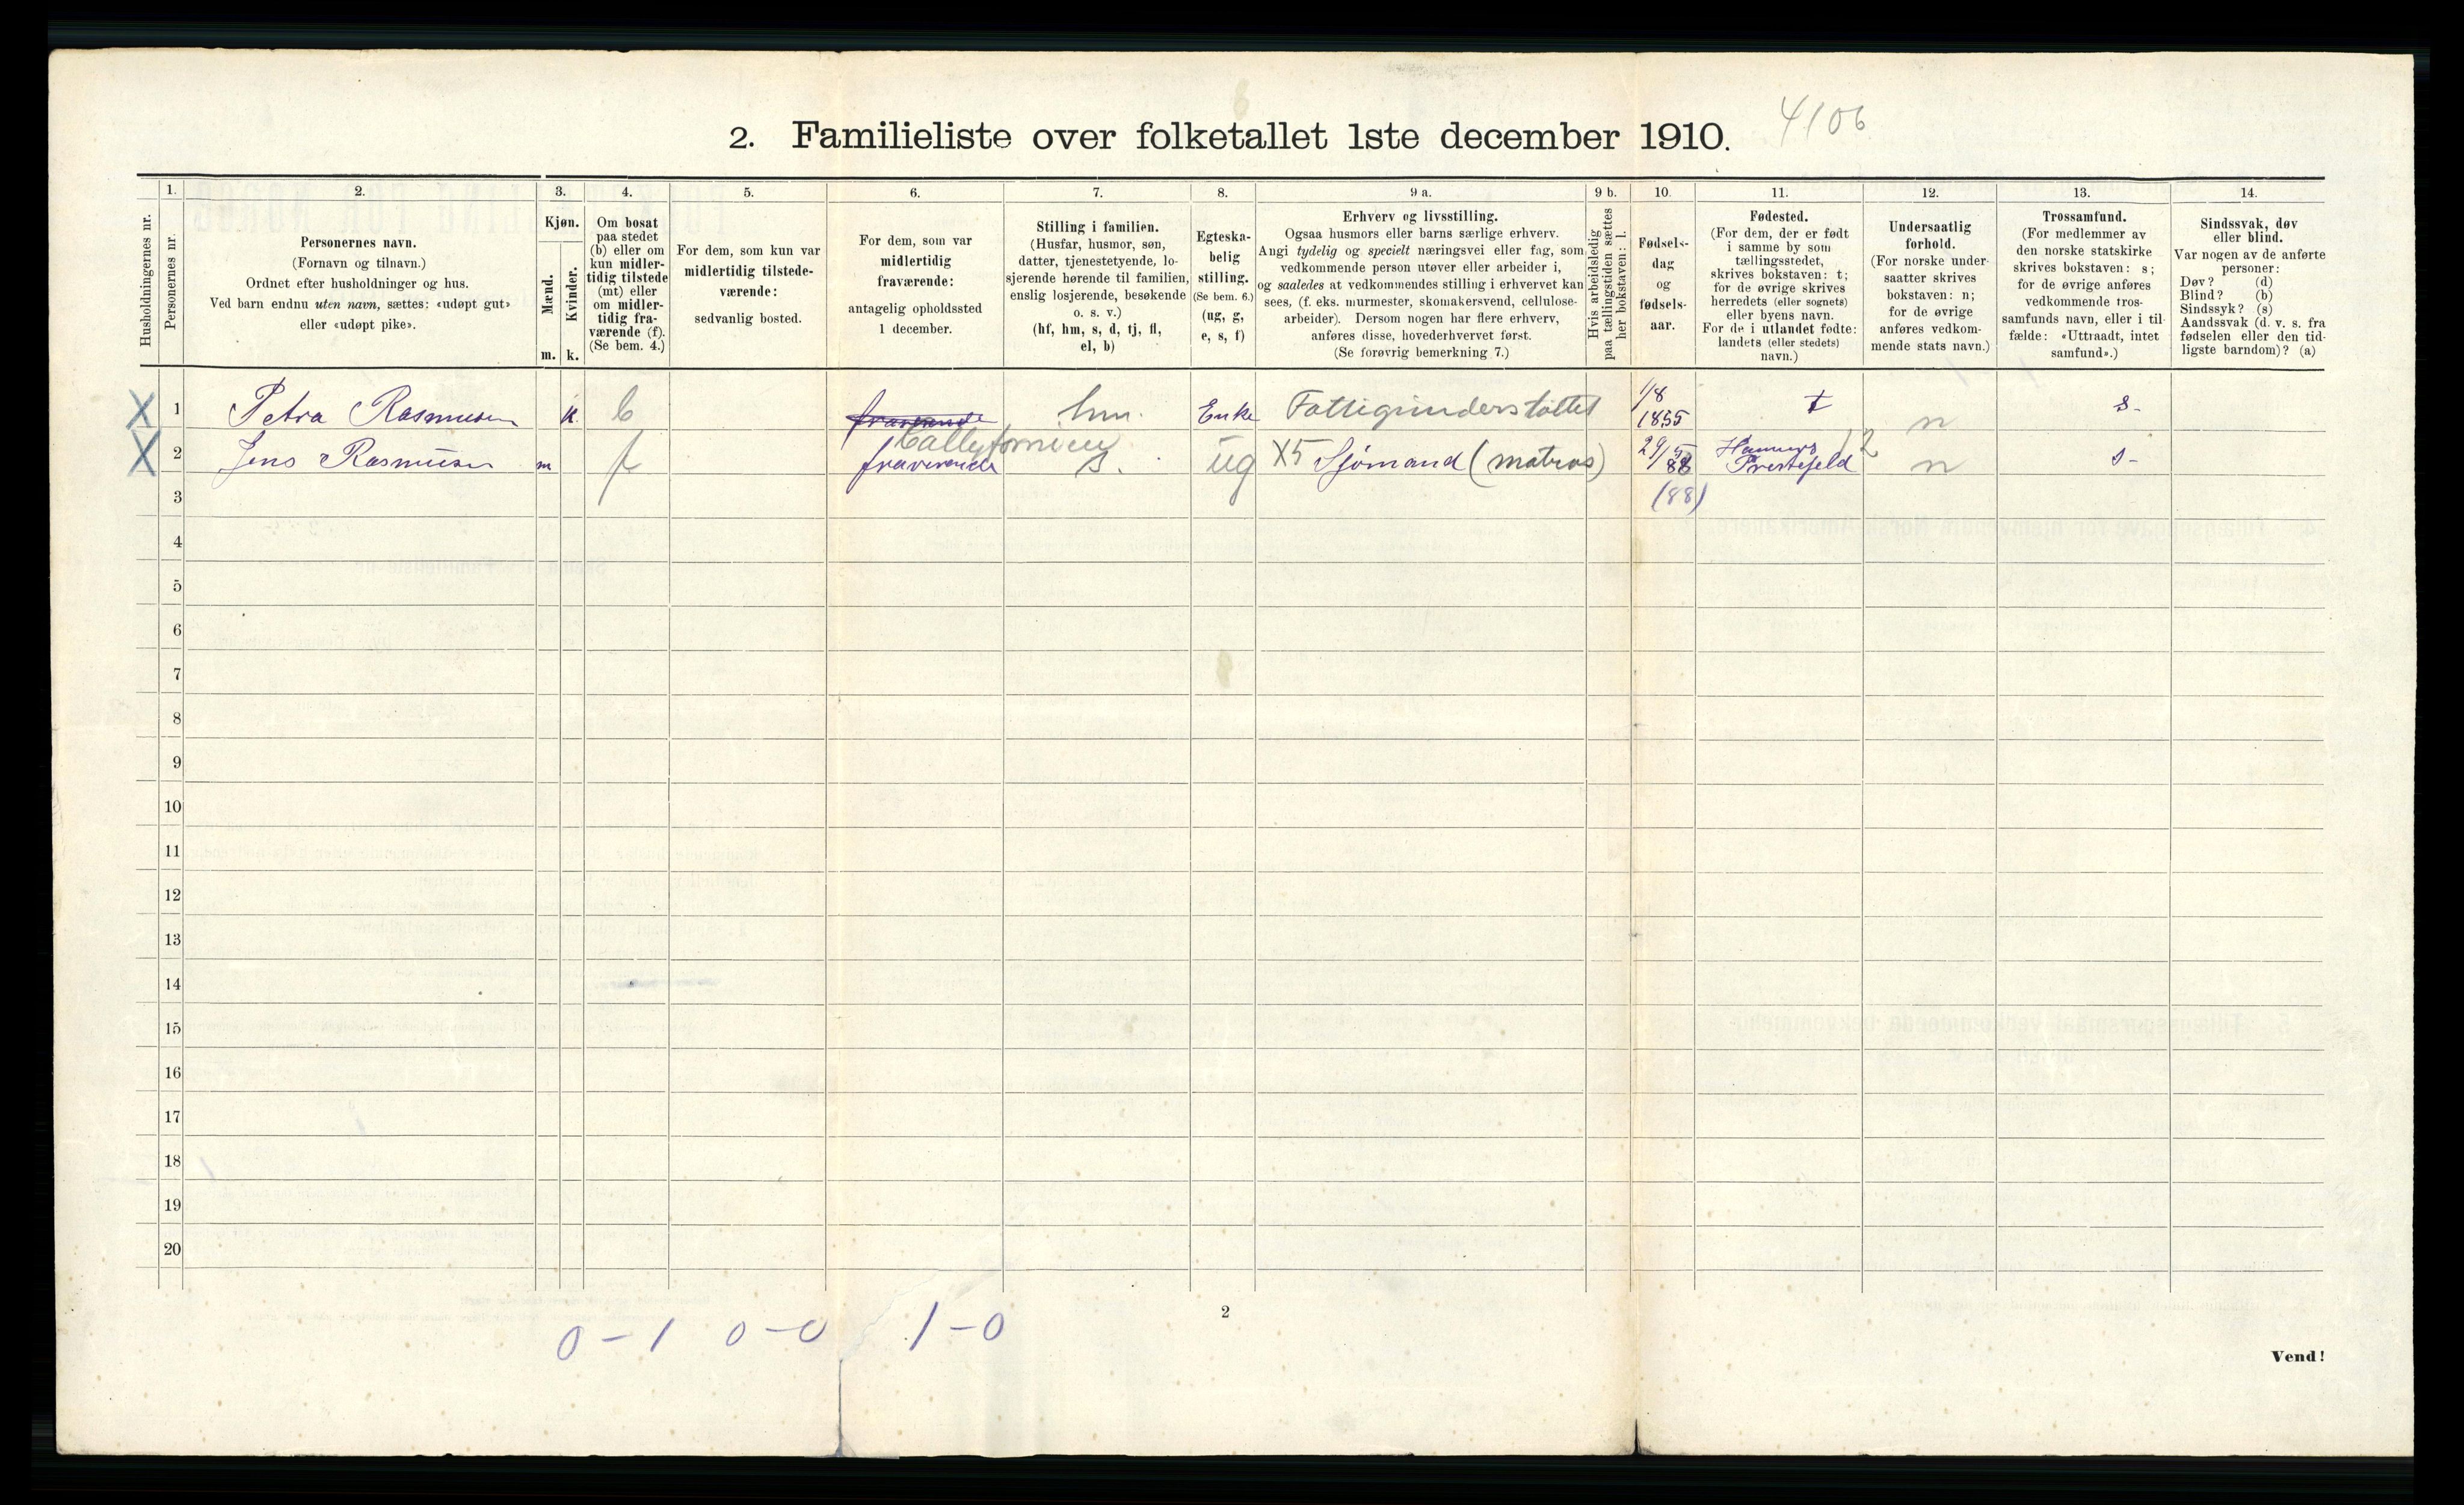 4106
2. Familieliste over folketallet 1ste december 1910.
Husholdningernes nr.
1.
Personernes nr.
2.
Personernes navn.
(Fornavn og tilnavn.)
Ordnet efter husholdninger og hus.
Ved barn endnu uten navn, sættes: «udøpt gut»
eller «udøpt pike».
3.
Kjøn.
Mænd.
Kvinder.
m. k.
4.
Om bosat
paa stedet
(b) eller om
kun midler-
tidig tilstede
(mt) eller
om midler-
tidig fra-
værende (f).
(Se bem. 4.)
5.
For dem, som kun var
midlertidig tilstede-
værende:
sedvanlig bosted.
6.
For dem, som var
midlertidig
fraværende:
antagelig opholdssted
1 december.
7.
Stilling i familien.
(Husfar, husmor, søn,
datter, tjenestetyende, lo-
sjerende hørende til familien,
enslig losjerende, besøkende
o. s. v.)
(hf, hm, s, d, tj, fl,
el, b)
8.
Egteska-
belig
stilling.
(Se bem. 6.)
(ug, g,
e, s, f)
9 a.
Erhverv og livsstilling.
Ogsaa husmors eller barns særlige erhverv.
Angi tydelig og specielt næringsvei eller fag, som
vedkommende person utøver eller arbeider i,
og saaledes at vedkommendes stilling i erhvervet kan
sees, (f. eks. murmester, skomakersvend, cellulose-
arbeider). Dersom nogen har flere erhverv,
anføres disse, hovederhvervet først.
(Se forøvrig bemerkning 7.)
9 b.
Hvis arbeidsledig
paa tællingstiden sættes
her bokstaven: l.
10.
Fødsels-
dag
og
fødsels-
aar.
11.
Fødested.
(For dem, der er født
i samme by som
tællingsstedet,
skrives bokstaven: t;
for de øvrige skrives
herredets (eller sognets)
eller byens navn.
For de i utlandet fødte:
landets (eller stedets)
navn.)
12.
Undersaatlig
forhold.
(For norske under-
saatter skrives
bokstaven: n;
for de øvrige
anføres vedkom-
mende stats navn.)
13.
Trossamfund.
(For medlemmer av
den norske statskirke
skrives bokstaven: s;
for de øvrige anføres
vedkommende tros-
samfunds navn, eller i til-
fælde: «Uttraadt, intet
samfund».)
14.
Sindssvak, døv
eller blind.
Var nogen av de anførte
personer:
Døv? (d)
Blind? (b)
Sindssyk? (s)
Aandssvak (d. v. s. fra
fødselen eller den tid-
ligste barndom)? (a)
X 1 Petra Rasmusen k. b fraverende hm. Enke Fattigunderstøttet 1/8 1855 t n s-
Callyfornien
X 2 Jens Rasmusen m f fraverende s. ug X5 Sjømand (matros) 29/5 88 12 n s-
3 (88)
4
5
6
7
8
9
10
11
12
13
14
15
16
17
18
19
20
0-1 0-0 1-0
2
Vend!